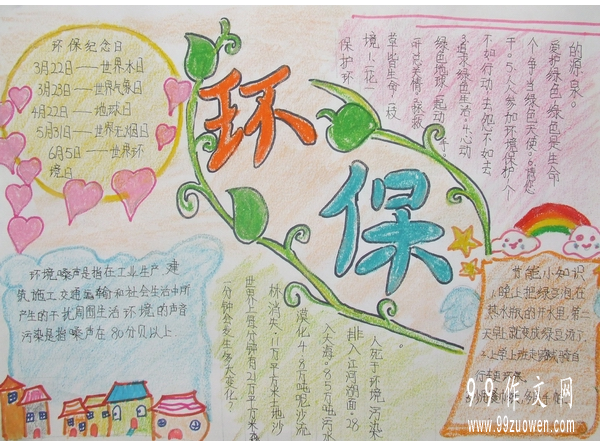 环保纪念日
3月22日——世界水日
3月23日——世界气象日
4月22日——地球日
5月31日——世界无烟日
6月5日——世界环
境日
环保
保护环
境:1.一花
草皆生命,一枝
可见关情。2.拯救
绿色地球,一起动手。
3.追求绿色生活。4.心动
不如行动去,怨不如去
干。5.人人参加环境保护,个
个争当绿色天使。6.愿您
爱护绿色,绿色是生命
的源泉。
环境噪声是指在工业生产,建
筑施工,交通运输和社会生活中所
产生的干扰周围生活环境的声音
污染是指噪声在80分贝以上
一分钟会发生多大变化?
世界上每分钟有21万平方米森
林消失,11万平方米土地沙
漠化,4.8万吨泥沙流
入大海,85万吨污水
排入江河湖面,28
人死于环境污染
节能小知识
1.晚上把绿豆泡在
热水瓶的开水里,第二
天早上就变成绿豆汤了
2.上学上班 骑自
行车
99作文网
www.99zuowen.com